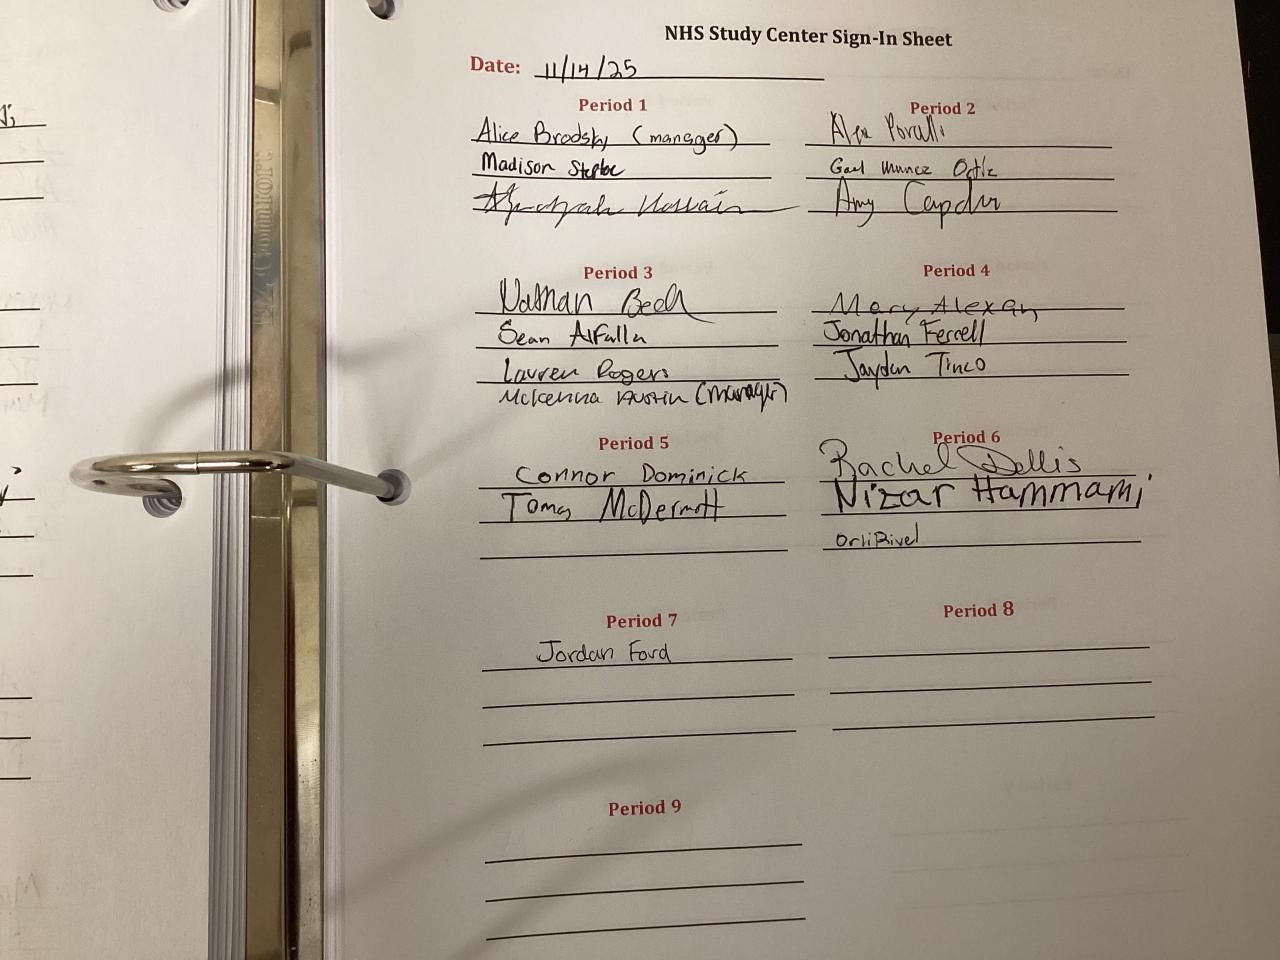 NHS Study Center Sign-In Sheet
Date: 11/14/25
Period 1
Alice Brodsky (manager)
Madison
Hossain
Period 2
Alex
Gael Munoz Ortiz
Amy
Period 3
Nathan Beck
Sean
Lauren Rogers
McKenna Austin (manager)
Period 4
Mary Alexan
Jonathan Ferrell
Jayden Tinco
Period 5
Connor Dominick
McDermott
Period 6
Rachel Dellis
Nizar Hammami
Period 7
Jordan Ford
Period 8
Period 9